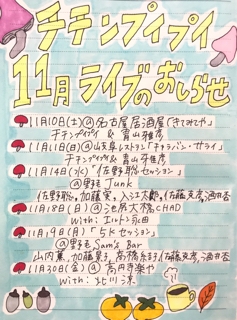 チチンプイプイ
11月ライブのおしらせ
11月10日(土)@名古屋居酒屋「きてみてや」
チチンプイプイ & 青山雅彦
11月11日(日)@山岐阜レストラン「チャラパン・サライ」
チチンプイプイ & 青山雅彦
11月14日(水)"佐野聡セッション"
@野毛 Junk
佐野聡、加藤実、入江太郎、佐藤克彦、酒井杏
11月18日(日)@池尻大橋CHAD
With: エルトン永田
11月19日(月)「5Kセッション」
@野毛 Sam's Bar
山内薫、加藤景子、高橋結子、佐藤克彦、酒井杏
11月30日(金)@高円寺楽や
With: 北川涼